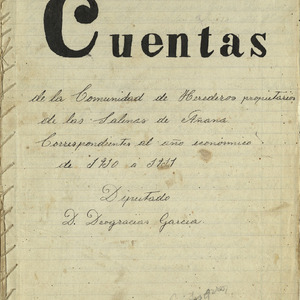 Cuentas
de la Comunidad de Herederos propietarios
de las Salinas de Añana
Correspondientes al año economico
de 1910 a 1911
Diputado
D. Deogracias Garcia